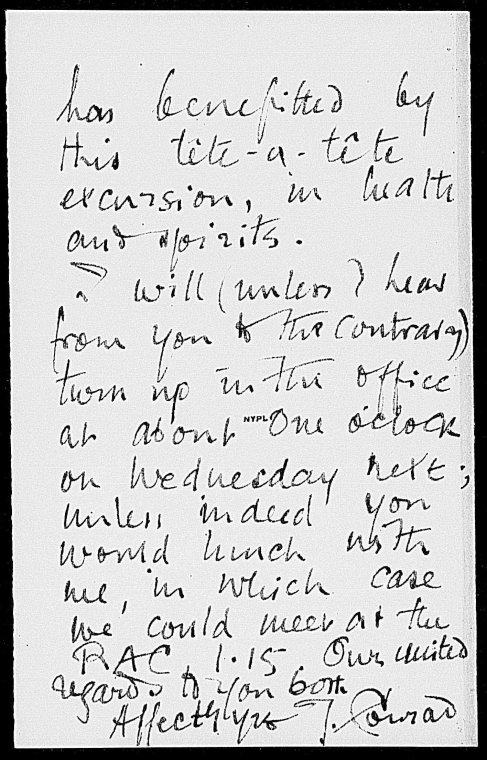 has benefitted by
this tête-a-tête
excursion, in health
and spirits.
I will (unless I hear
from you to the contrary)
turn up in the office
at about NYPL One o'clock
on Wednesday next;
unless indeed you
would lunch with
me, in which case
we could meet at the
RAC, 1.15 Our united
regards to you both
Affectly yrs J. Conrad